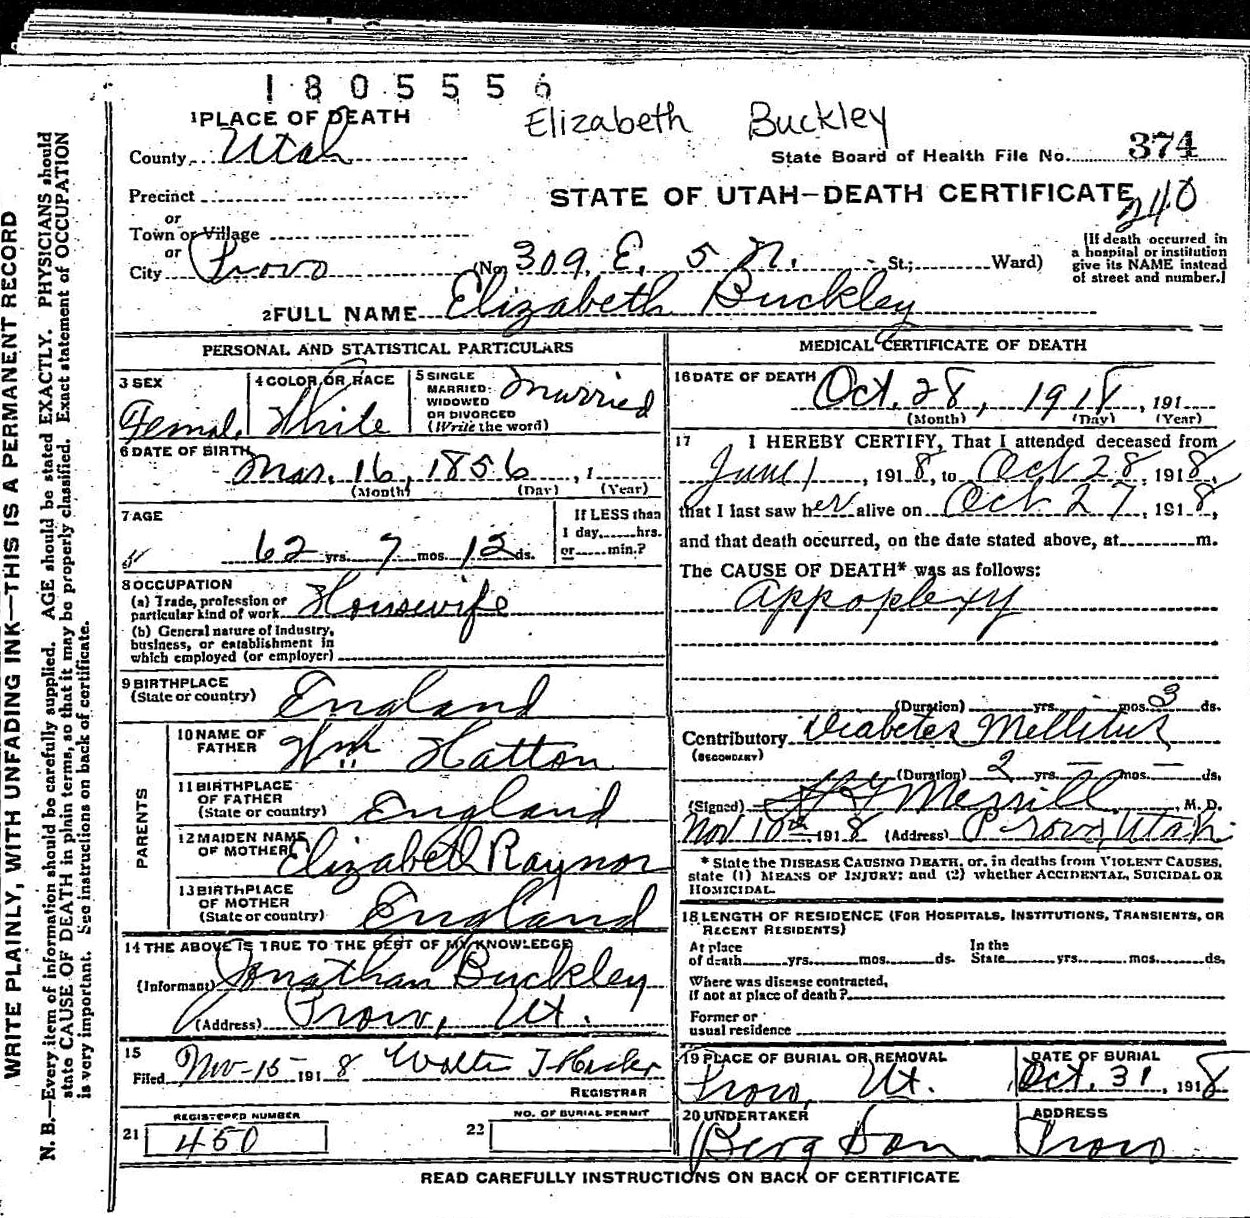 1805556
Elizabeth Buckley
1 PLACE OF DEATH
County Utah
State Board of Health File No. 374
Precinct
STATE OF UTAH—DEATH CERTIFICATE
240
or
Town or Village
or
City Provo (No. 309. E. 5 N. St.; Ward)
[If death occurred in
a hospital or institution
give its NAME instead
of street and number.]
2 FULL NAME Elizabeth Buckley
PERSONAL AND STATISTICAL PARTICULARS
3 SEX
Femal.
4 COLOR OR RACE
White
5 SINGLE
MARRIED
WIDOWED
OR DIVORCED
(Write the word)
Married
6 DATE OF BIRTH
Mar. 16, 1856, 1
(Month) (Day) (Year)
7 AGE
62 yrs. 7 mos. 12 ds.
If LESS than
1 day, hrs.
or min.?
8 OCCUPATION
(a) Trade, profession or
particular kind of work Housewife
(b) General nature of Industry,
business, or establishment in
which employed (or employer)
9 BIRTHPLACE
(State or country) England
PARENTS
10 NAME OF
FATHER Wm Hatton
11 BIRTHPLACE
OF FATHER
(State or country) England
12 MAIDEN NAME
OF MOTHER Elizabeth Raynor
13 BIRTHPLACE
OF MOTHER
(State or country) England
14 THE ABOVE IS TRUE TO THE BEST OF MY KNOWLEDGE
(Informant) Jonathan Buckley
(Address) Provo, Ut.
15
Filed Nov-15-1918 Walter T
REGISTRAR
REGISTERED NUMBER
21 450
NO. OF BURIAL PERMIT
22
MEDICAL CERTIFICATE OF DEATH
16 DATE OF DEATH
Oct. 28, 1918, 191
(Month) (Day) (Year)
17 I HEREBY CERTIFY, That I attended deceased from
June 1, 1918, to Oct 28, 1918,
that I last saw her alive on Oct 27, 1918,
and that death occurred, on the date stated above, at m.
The CAUSE OF DEATH* was as follows:
Appoplexy
(Duration) yrs. mos. 3 ds.
Contributory Diabetes Mellitus
(SECONDARY)
(Duration) 2 yrs. — mos. — ds.
(Signed) Merrill, M. D.
Nov 10th 1918 (Address) Provo, Utah.
* State the DISEASE CAUSING DEATH, or, in deaths from VIOLENT CAUSES,
state (1) MEANS OF INJURY: and (2) whether ACCIDENTAL, SUICIDAL OR
HOMICIDAL.
18 LENGTH OF RESIDENCE (FOR HOSPITALS, INSTITUTIONS, TRANSIENTS, OR
RECENT RESIDENTS)
At place In the
of death yrs. mos. ds. State yrs. mos. ds.
Where was disease contracted,
if not at place of death?
Former or
usual residence
19 PLACE OF BURIAL OR REMOVAL
Provo, Ut.
DATE OF BURIAL
Oct. 31, 1918
20 UNDERTAKER
Berg Son
ADDRESS
Provo
READ CAREFULLY INSTRUCTIONS ON BACK OF CERTIFICATE
WRITE PLAINLY, WITH UNFADING INK—THIS IS A PERMANENT RECORD
N. B.—Every item of information should be carefully supplied. AGE should be stated EXACTLY. PHYSICIANS should
state CAUSE OF DEATH in plain terms, so that it may be properly classified. Exact statement of OCCUPATION
is very important. See instructions on back of certificate.